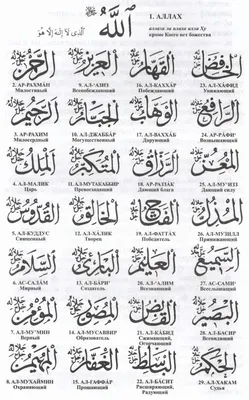 الله
الَّذِي لَا إِلَهَ إِلَّا هُوَ
1. АЛЛАХ
аллази ла илаха илла Ху
кроме Коего нет божества
الرحمن العزيز القهار الخافض
2. АР-РАХМАН 9. АЛ-'АЗИЗ 16. АЛ-КАХХАР 23. АЛ-ХАФИД
Милостивый Всепобеждающий Унижающий
الرحيم الجبار الوهاب الرافع
3. АР-РАХИМ 10. АЛ-ДЖАББАР 17. АЛ-ВАХХАБ 24. АР-РАФИГ
Милосердный Могущественный Дарующий Возвышающий
الملك المتكبر الرزاق المعز
4. АЛ-МАЛИК 11. АЛ-МУТАКАББИР 18. АР-РАЗЗАК 25. АЛ-МУ'ИЗЗ
Царь Превосходящий Дающий блага Дающий силу
القدوس الخالق الفتاح المذل
5. АЛ-КУДДУС 12. АЛ-ХАЛИК 19. АЛ-ФАТТАХ 26. АЛ-МУЗИЛЛ
Священный Творец Победитель Принижающий
السلام البارئ العليم السميع
6. АС-САЛАМ 13. АЛ-БАРИ' 20. АЛ-АЛИМ 27. АС-САМИ'
Мирный Создатель Всезнающий Всеслышащий
المؤمن المصور القابض البصير
7. АЛ-МУ'МИН 14. АЛ-МУСАВВИР 21. АЛ-КАБИД 28. АЛ-БАСИР
Верный Образователь Сжимающий, Всевидящий
Опечаливающий
المهيمن الغفار الباسط الحكم
8. АЛ-МУХАЙМИН 15. АЛ-ГАФФАР 22. АЛ-БАСИТ 29. АЛ-ХАКАМ
Охраняющий Прощающий Расширяющий, Судья
Радующий